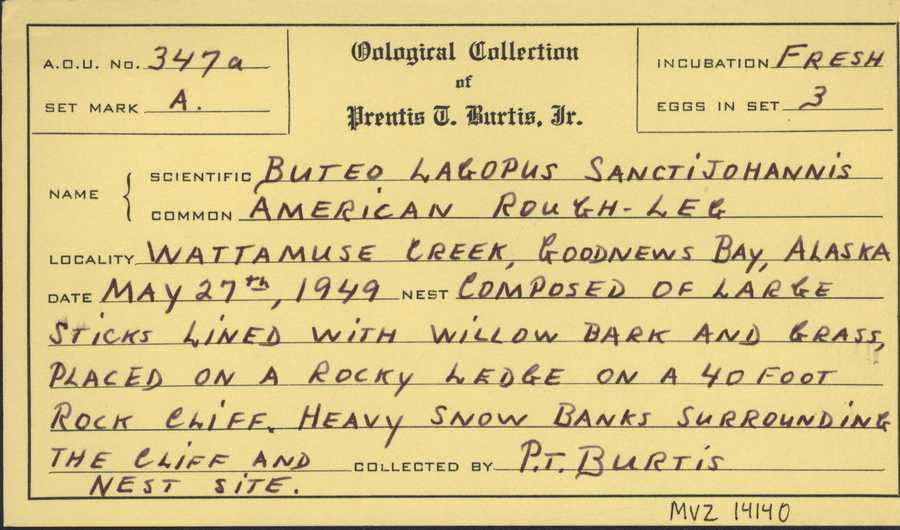 A.O.U. No. 347a
SET MARK A.
Oological Collection
of
Prentis T. Burtis, Jr.
INCUBATION FRESH
EGGS IN SET 3
NAME { SCIENTIFIC BUTEO LAGOPUS SANCTIJOHANNIS
COMMON AMERICAN ROUGH-LEG
LOCALITY WATTAMUSE CREEK, GOODNEWS BAY, ALASKA
DATE MAY 27th, 1949 NEST COMPOSED OF LARGE
STICKS LINED WITH WILLOW BARK AND GRASS,
PLACED ON A ROCKY LEDGE ON A 40 FOOT
ROCK CLIFF. HEAVY SNOW BANKS SURROUNDING
THE CLIFF AND COLLECTED BY P.T. BURTIS
NEST SITE.
MVZ 14140